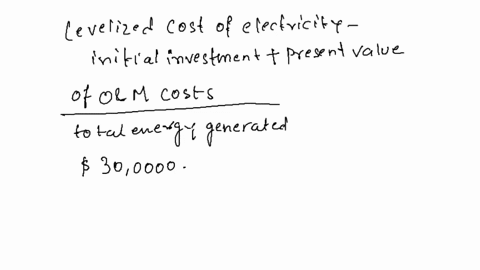 Levelized cost of electricity -
initial investment + present value
of O&M costs
total energy generated
$ 30,0000.